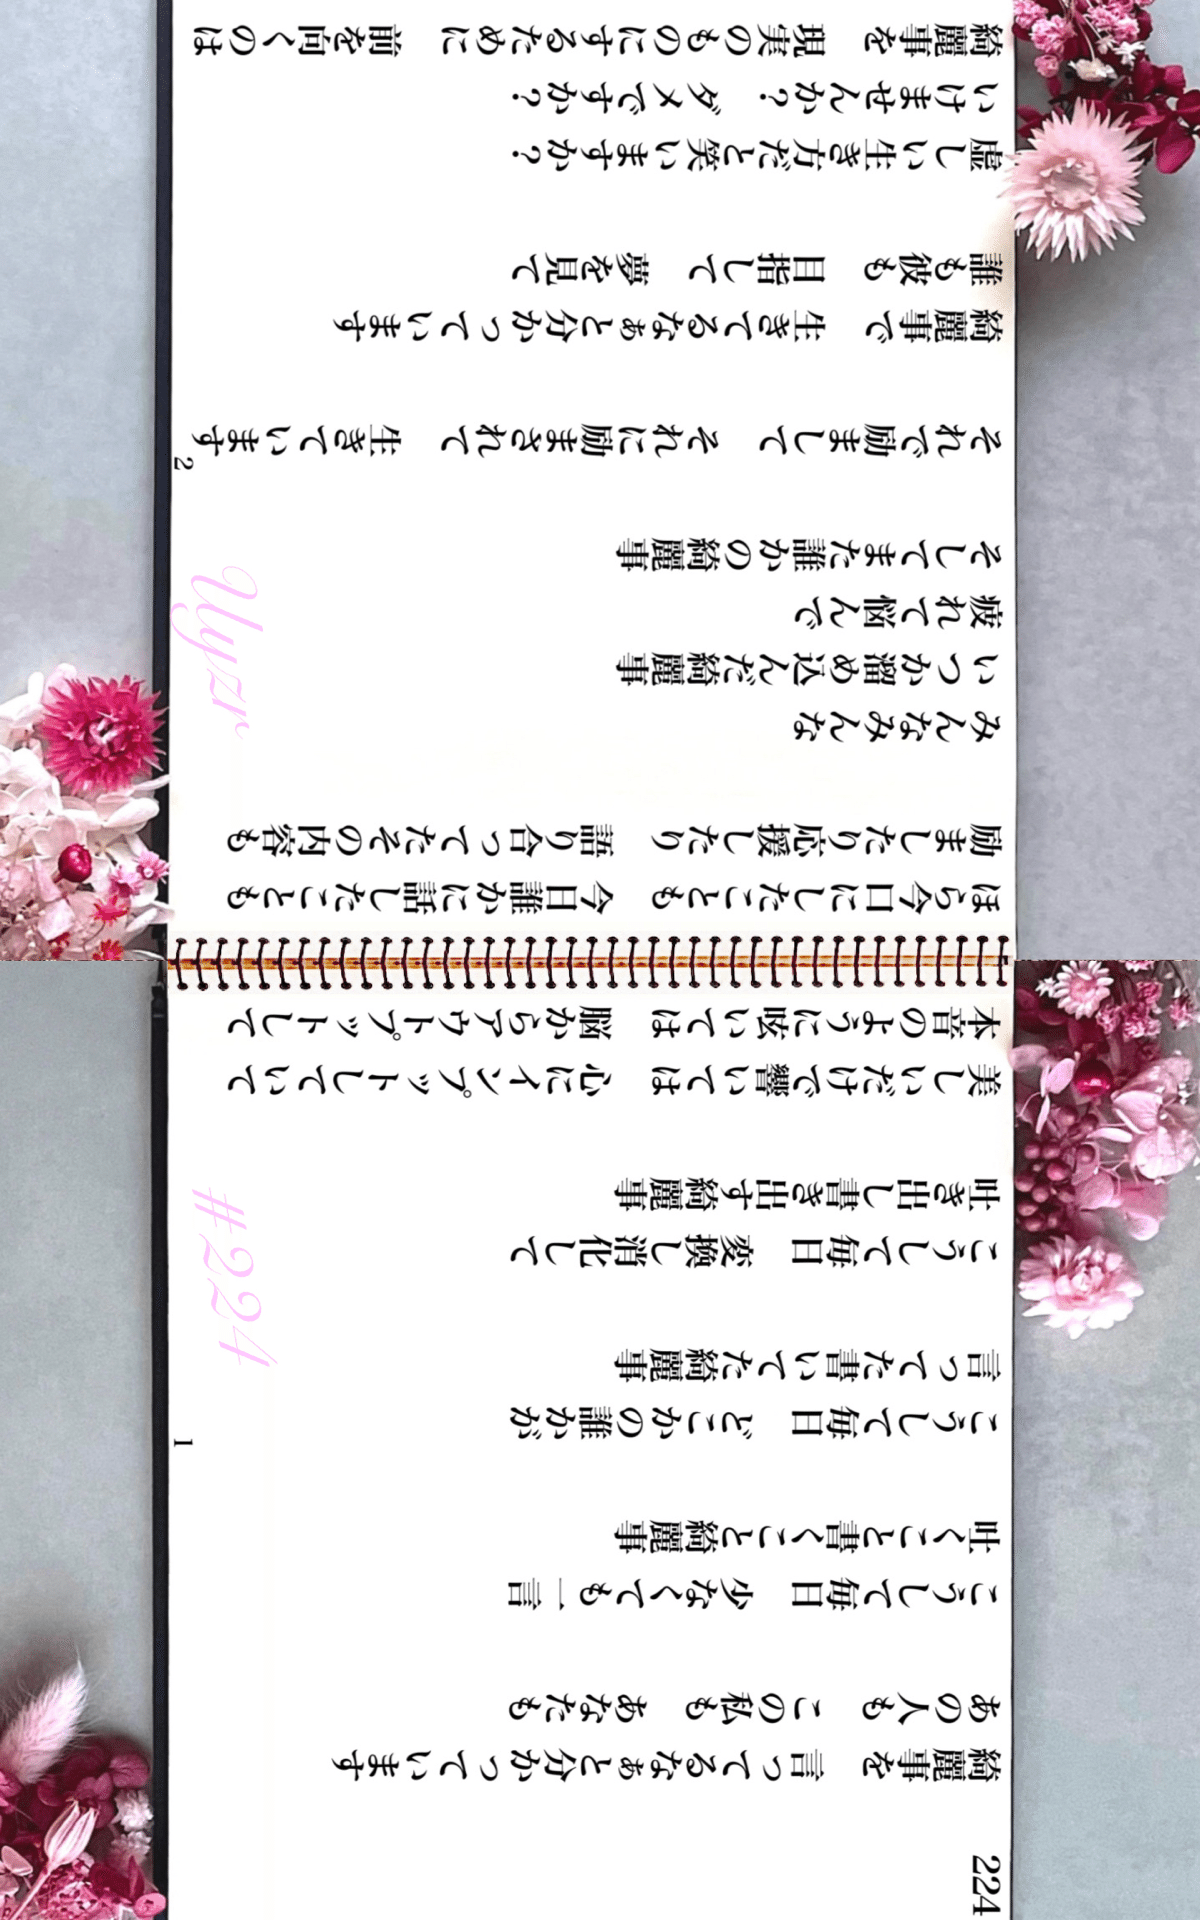 224
綺麗事を　言ってるなぁと分かっています
あの人も　この私も　あなたも
こうして毎日　少なくても一言
吐くこと書くこと綺麗事
こうして毎日　どこかの誰かが
言ってた書いてた綺麗事
こうして毎日　変換し消化して
吐き出し書き出す綺麗事
美しいだけで響いては　心にインプットしていて
本音のように呟いては　脳からアウトプットして
1
#224
ほら今口にしたことも　今日誰かに話したことも
励ましたり応援したり　語り合ってたその内容も
みんなみんな
いつか溜め込んだ綺麗事
疲れて悩んで
そしてまた誰かの綺麗事
それで励まして　それに励まされて　生きています
綺麗事で　生きてるなぁと分かっています
誰も彼も　目指して　夢を見て
虚しい生き方だと笑いますか？
いけませんか？　ダメですか？
綺麗事を　現実のものにするために　前を向くのは
2